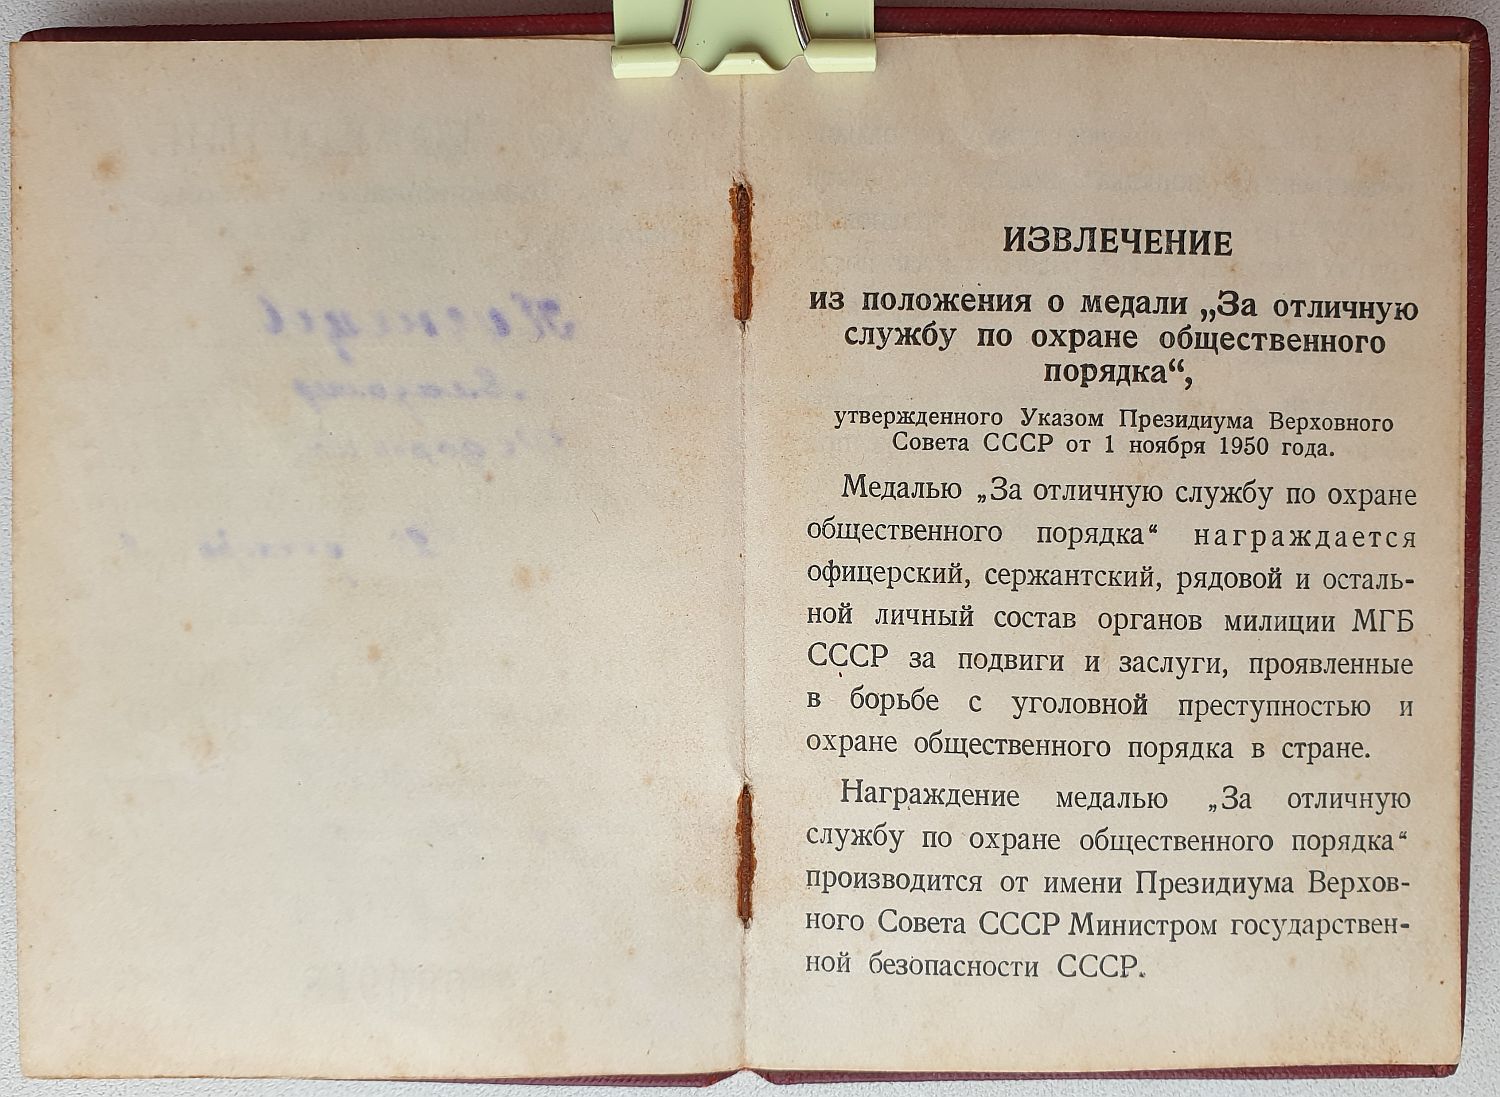 ИЗВЛЕЧЕНИЕ
из положения о медали „За отличную
службу по охране общественного
порядка“,
утвержденного Указом Президиума Верховного
Совета СССР от 1 ноября 1950 года.
Медалью „За отличную службу по охране
общественного порядка“ награждается
офицерский, сержантский, рядовой и осталь-
ной личный состав органов милиции МГБ
СССР за подвиги и заслуги, проявленные
в борьбе с уголовной преступностью и
охране общественного порядка в стране.
Награждение медалью „За отличную
службу по охране общественного порядка“
производится от имени Президиума Верхов-
ного Совета СССР Министром государствен-
ной безопасности СССР.